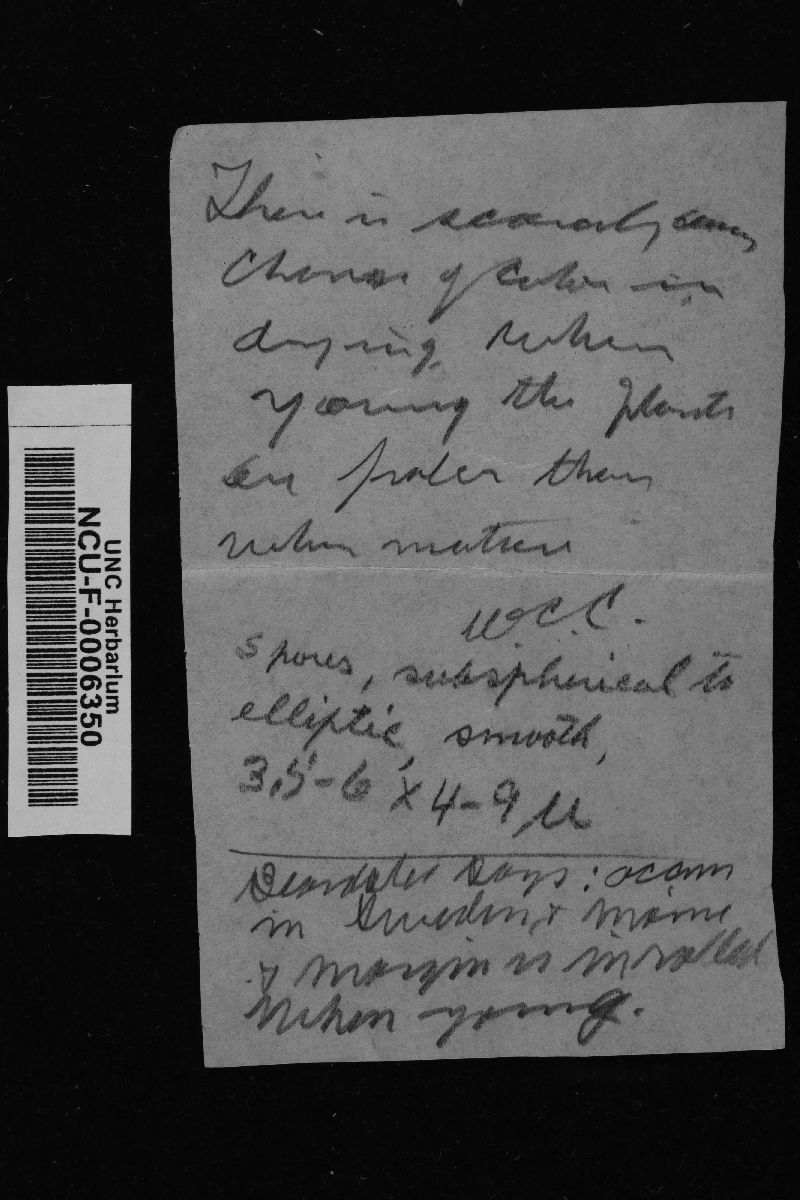 There is scarcely any
change of color in
drying. When
young the plants
are paler than
when mature
W.C.C.
Spores, subspherical to
elliptic, smooth,
3.5-6 x 4-9 µ
Beardslee says: occurs
in Sweden & Maine
& margin is inrolled
when young.
UNC Herbarium
NCU-F-0006350